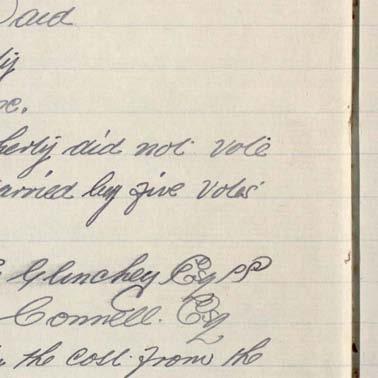 said
ly
herly did not vote
arried by five votes
Glinchey Esq PP
Connell. Esq
the cost from the